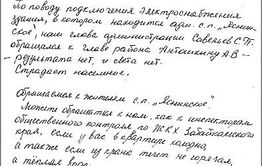 По поводу подключения электроснабжения
здания, в котором находится адм. с.п. "Ленин-
ское", наш глава администрации Савельев С.П.
обращался к главе района
- результата нет, и света нет.
Страдает население.
Обращаемся к жителям с.п. "Ленинское".
Можете обращаться к нам, как к инспекторам
общественного контроля по ЖКХ Забайкальского
края, если у вас в квартире холодно,
а также если из крана течет не горячая,
а тёплая вода.